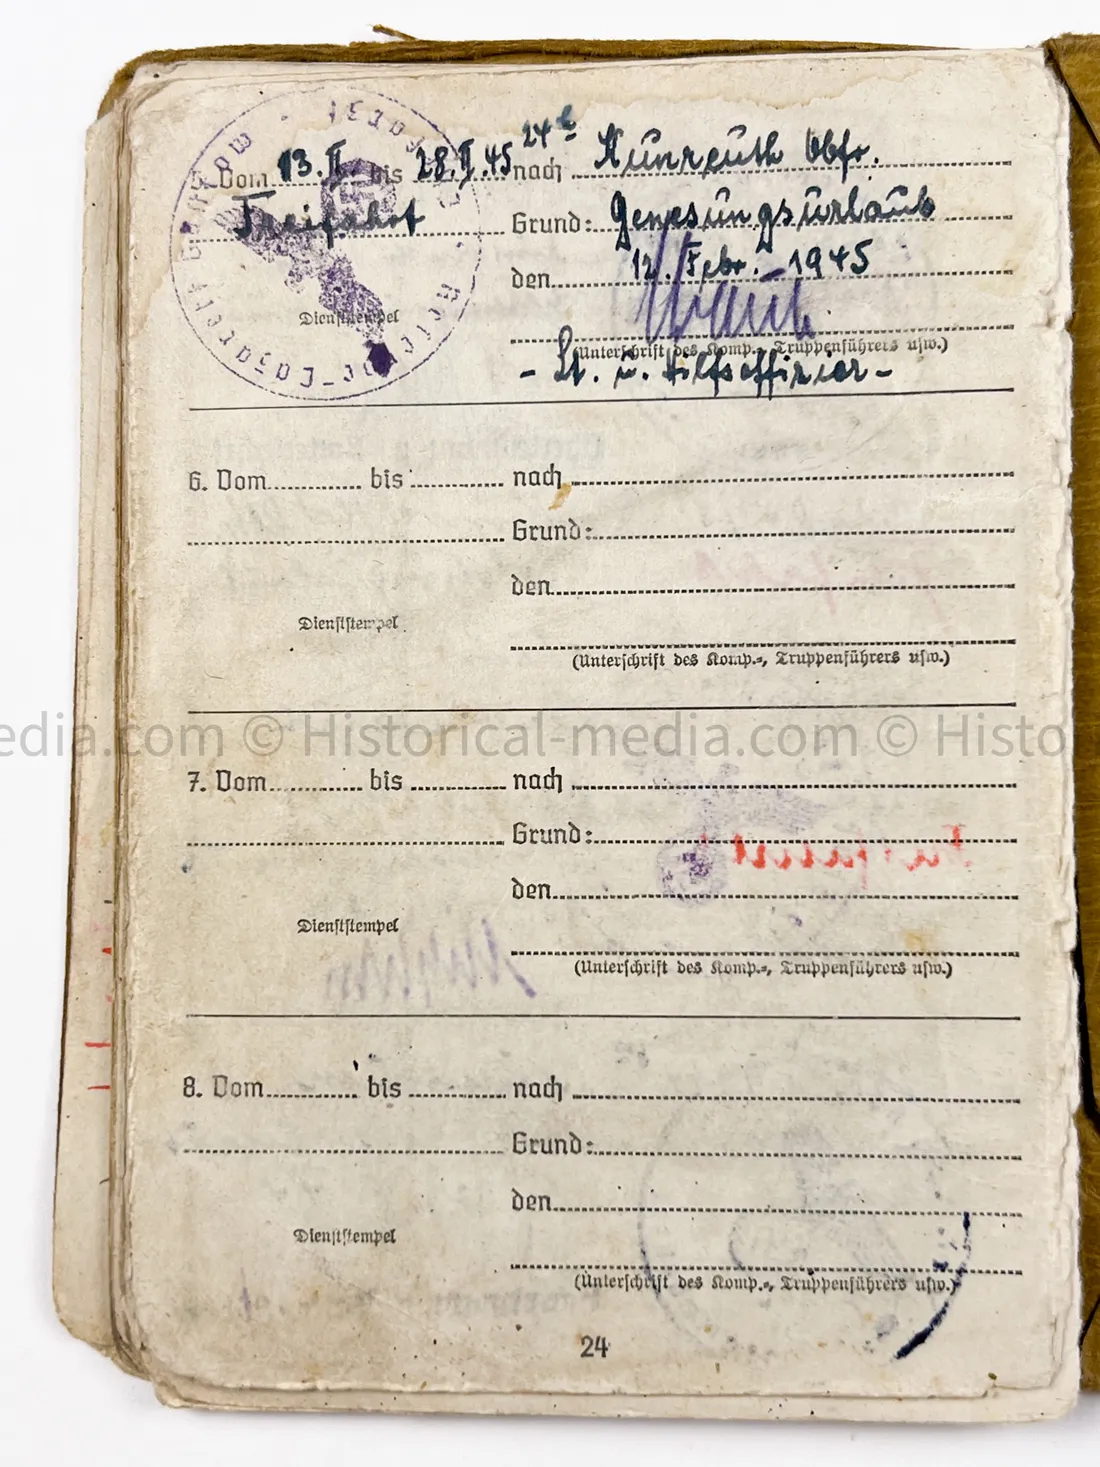 Vom 13.II. bis 28.II.45 24h nach Kunreuth Obfr.
Freifahrt Grund: Genesungsurlaub
den 12. Febr. 1945
Dienststempel
(Unterschrift des Komp.-, Truppenführers usw.)
- Lt. u. Hilfsoffizier -
6. Vom bis nach
Grund:
den
Dienststempel
(Unterschrift des Komp.-, Truppenführers usw.)
edia.com © Historical-media.com © Histo
7. Vom bis nach
Grund:
den
Dienststempel
(Unterschrift des Komp.-, Truppenführers usw.)
8. Vom bis nach
Grund:
den
Dienststempel
(Unterschrift des Komp.-, Truppenführers usw.)
24